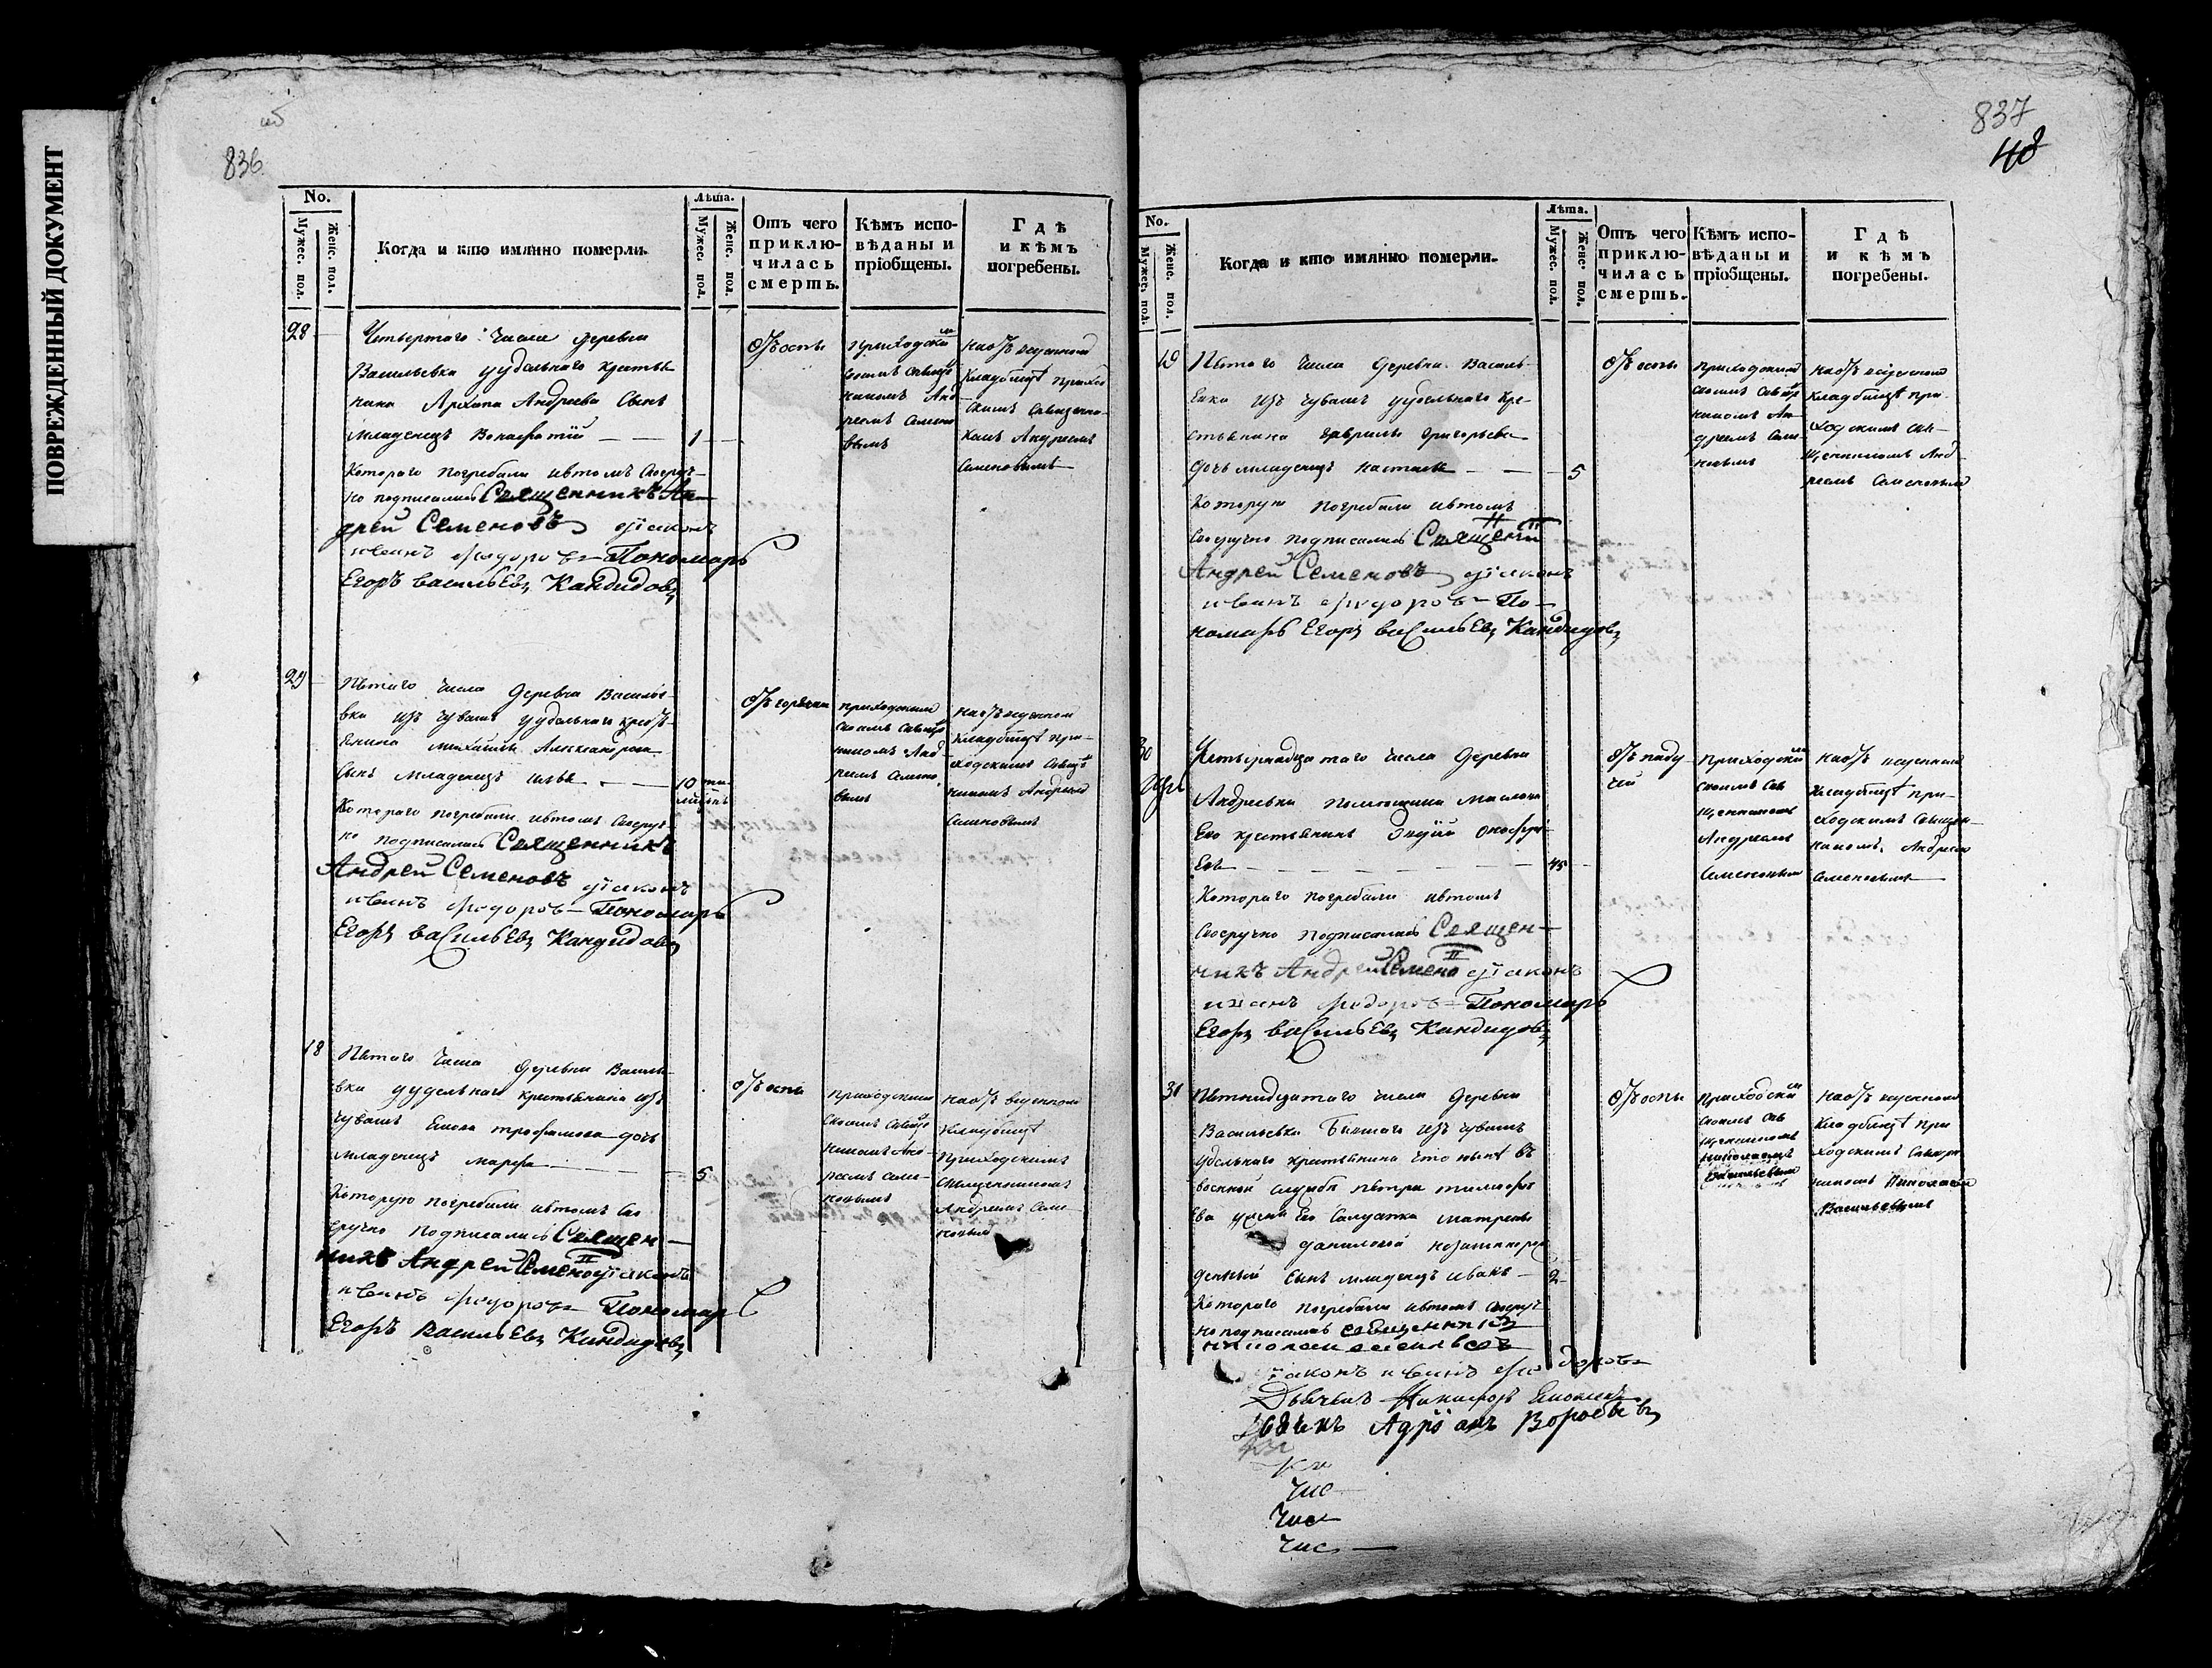 ПОВРЕЖДЕННЫЙ ДОКУМЕНТ
836
No.
Мужес. пол.
Женс. пол.
Когда и кто имянно померли.
Лѣта.
Мужес. пол.
Женс. пол.
Отъ чего
приклю-
чилась
смерть.
Кѣмъ испо-
вѣданы и
пріобщены.
Гдѣ
и кѣмъ
погребены.
28
Четвертаго числа деревни
Васильевки удѣльнаго крестья
нина Архипа Андреева сынъ
младенецъ
1
Котораго погребали и въ томъ своеруч-
но подписались Священникъ Ан-
дрей Семеновъ діаконъ
иванъ федоровъ Пономарь
Егоръ васильевъ Кандидовъ
отъ оспы
приходским
своимъ свяще
нникомъ Анд
реемъ Семено
вымъ
на отведенном
кладбищѣ прихо
скимъ священно-
комъ Андреемъ
Семеновымъ
29
Пятаго числа деревни Василье-
вки изъ чувашъ удѣльнаго крестъ-
янина Александрова
сынъ младенецъ
10
Котораго погребали и въ томъ своеруч-
но подписались Священникъ
Андрей Семеновъ діаконъ
иванъ федоровъ Пономарь
Егоръ васильевъ Кандидовъ
отъ горячки
приходским
своимъ свяще
нникомъ Анд
реемъ Семено
вымъ
на отведенном
кладбищѣ при-
ходскимъ священ
никомъ Андреем
Семеновымъ
18
Пятаго числа деревни Василь-
вки удѣльнаго крестьянина изъ
чувашъ трофимова дочь
младенецъ марфа
5
Которую погребали и въ томъ сво
еручно подписались Священ-
никъ Андрей Семено діаконъ
иванъ федоровъ Пономарь
Егоръ Васильевъ Кандидовъ
отъ оспы
приходским
своимъ свяще
нникомъ Анд-
реемъ Семе-
новымъ
на отведенном
кладбищѣ
приходскимъ
священникомъ
Андреемъ Семе
новым
837
48
No.
Мужес. пол.
Женс. пол.
Когда и кто имянно померли.
Лѣта.
Мужес. пол.
Женс. пол.
Отъ чего
приклю-
чилась
смерть.
Кѣмъ испо-
вѣданы и
пріобщены.
Гдѣ
и кѣмъ
погребены.
19
Пятаго числа деревни Василь-
евки изъ чувашъ удѣльнаго кре-
стьянина гаврилы григорьева
дочь младенецъ настасья
5
Которую погребали и въ томъ
своеручно подписались Священни
Андрей Семеновъ діаконъ
иванъ федоровъ По-
номарь Егоръ васильевъ Кандидовъ
отъ оспы
приходским
своимъ свяще
нникомъ Ан-
дреемъ Семе-
новымъ
на отведенном
кладбищѣ при-
ходскимъ свя-
щенникомъ Анд-
реемъ Семеновым
30
Четырнадцатаго числа деревни
Андреевки помещика Маслова
Его крестьянинъ
45
Котораго погребали и въ томъ
своеручно подписались Священ-
никъ Андрей Семено діаконъ
иванъ федоровъ Пономарь
Егоръ васильевъ Кандидовъ
отъ паду-
чей
приходским
своимъ свя
щенникомъ
Андреемъ
Семеновым
на отведенном
кладбищѣ при-
ходскимъ священ-
никомъ Андреем
Семеновымъ
31
Пятнадцатаго числа деревни
Васильевки бывшаго изъ чувашъ
удѣльнаго крестьянина что нынѣ въ
военной службѣ петра
ева у жены его салдатки матрены
даниловой незаконорож
денный сынъ младенецъ иванъ
2
Котораго погребали и въ томъ своеруч
но подписались священникъ
николай васильевъ
діаконъ иванъ федоровъ
Дьячекъ Никифоръ
Адріанъ Воробьевъ
отъ оспы
приходским
своимъ свя
щенникомъ
николаемъ
Васильевым
на отведенном
кладбищѣ при
ходскимъ священ
никомъ Николаем
Васильевымъ
Чис
Чис
Чис